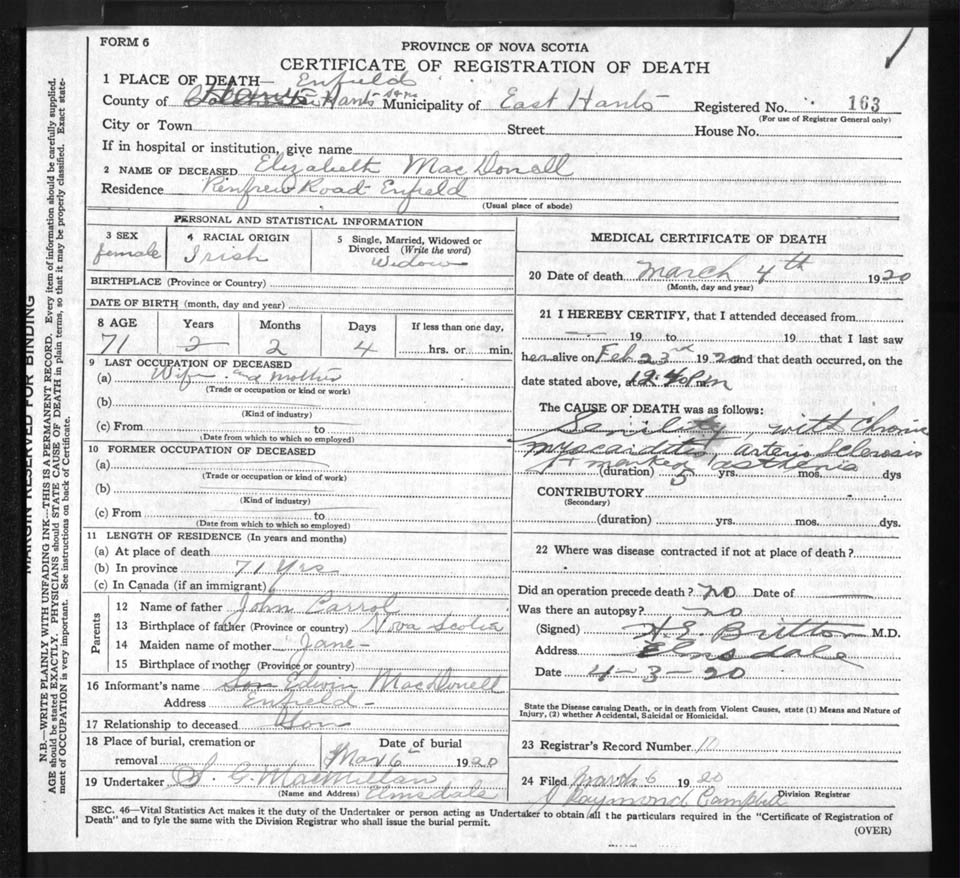 FORM 6
PROVINCE OF NOVA SCOTIA
CERTIFICATE OF REGISTRATION OF DEATH
1 PLACE OF DEATH— Enfield
County of Hants Municipality of East Hants Registered No. 163
(For use of Registrar General only)
City or Town Street House No.
If in hospital or institution, give name
2 NAME OF DECEASED Elizabeth MacDonell
Residence Renfrew Road - Enfield
(Usual place of abode)
PERSONAL AND STATISTICAL INFORMATION
3 SEX 4 RACIAL ORIGIN 5 Single, Married, Widowed or
Divorced (Write the word)
female Irish Widow
BIRTHPLACE (Province or Country)
DATE OF BIRTH (month, day and year)
8 AGE Years Months Days If less than one day,
71 2 2 4 hrs. or min.
9 LAST OCCUPATION OF DECEASED
(a) Wife and Mother
(Trade or occupation or kind or work)
(b)
(Kind of industry)
(c) From to
(Date from which to which so employed)
10 FORMER OCCUPATION OF DECEASED
(a)
(Trade or occupation or kind of work)
(b)
(Kind of industry)
(c) From to
(Date from which to which so employed)
11 LENGTH OF RESIDENCE (In years and months)
(a) At place of death
(b) In province 71 yrs
(c) In Canada (if an immigrant)
Parents
12 Name of father John Carrol
13 Birthplace of father (Province or country) Nova Scotia
14 Maiden name of mother "Jane -
15 Birthplace of mother (Province or country)
16 Informant's name Son Edwin MacDonell
Address Enfield -
17 Relationship to deceased Son
18 Place of burial, cremation or Date of burial
removal Mar 6 1920
19 Undertaker S. G. MacMillan
(Name and Address) Elmsdale
MEDICAL CERTIFICATE OF DEATH
20 Date of death March 4th 1920
(Month, day and year)
21 I HEREBY CERTIFY, that I attended deceased from
19 to 19 that I last saw
her alive on Feb 23rd 1920 and that death occurred, on the
date stated above, at 12.40 pm
The CAUSE OF DEATH was as follows:
Senility with chronic
myocarditis arterio sclerosis
& marked asthenia
(duration) 5 yrs. mos. dys
CONTRIBUTORY
(Secondary)
(duration) yrs. mos. dys.
22 Where was disease contracted if not at place of death?
Did an operation precede death? no Date of
Was there an autopsy? no
(Signed) H. E. Britton M.D.
Address Elmsdale
Date 4-3-20
State the Disease causing Death, or in death from Violent Causes, state (1) Means and Nature of
Injury, (2) whether Accidental, Suicidal or Homicidal.
23 Registrar's Record Number
24 Filed March 6 1920
J Raymond Campbell Division Registrar
SEC. 46—Vital Statistics Act makes it the duty of the Undertaker or person acting as Undertaker to obtain all the particulars required in the "Certificate of Registration of
Death" and to fyle the same with the Division Registrar who shall issue the burial permit.
(OVER)
MARGIN RESERVED FOR BINDING
N.B.—WRITE PLAINLY WITH UNFADING INK—THIS IS A PERMANENT RECORD. Every item of information should be carefully supplied.
AGE should be stated EXACTLY. PHYSICIANS should STATE CAUSE OF DEATH in plain terms, so that it may be properly classified. Exact state-
ment of OCCUPATION is very important. See instructions on back of Certificate.